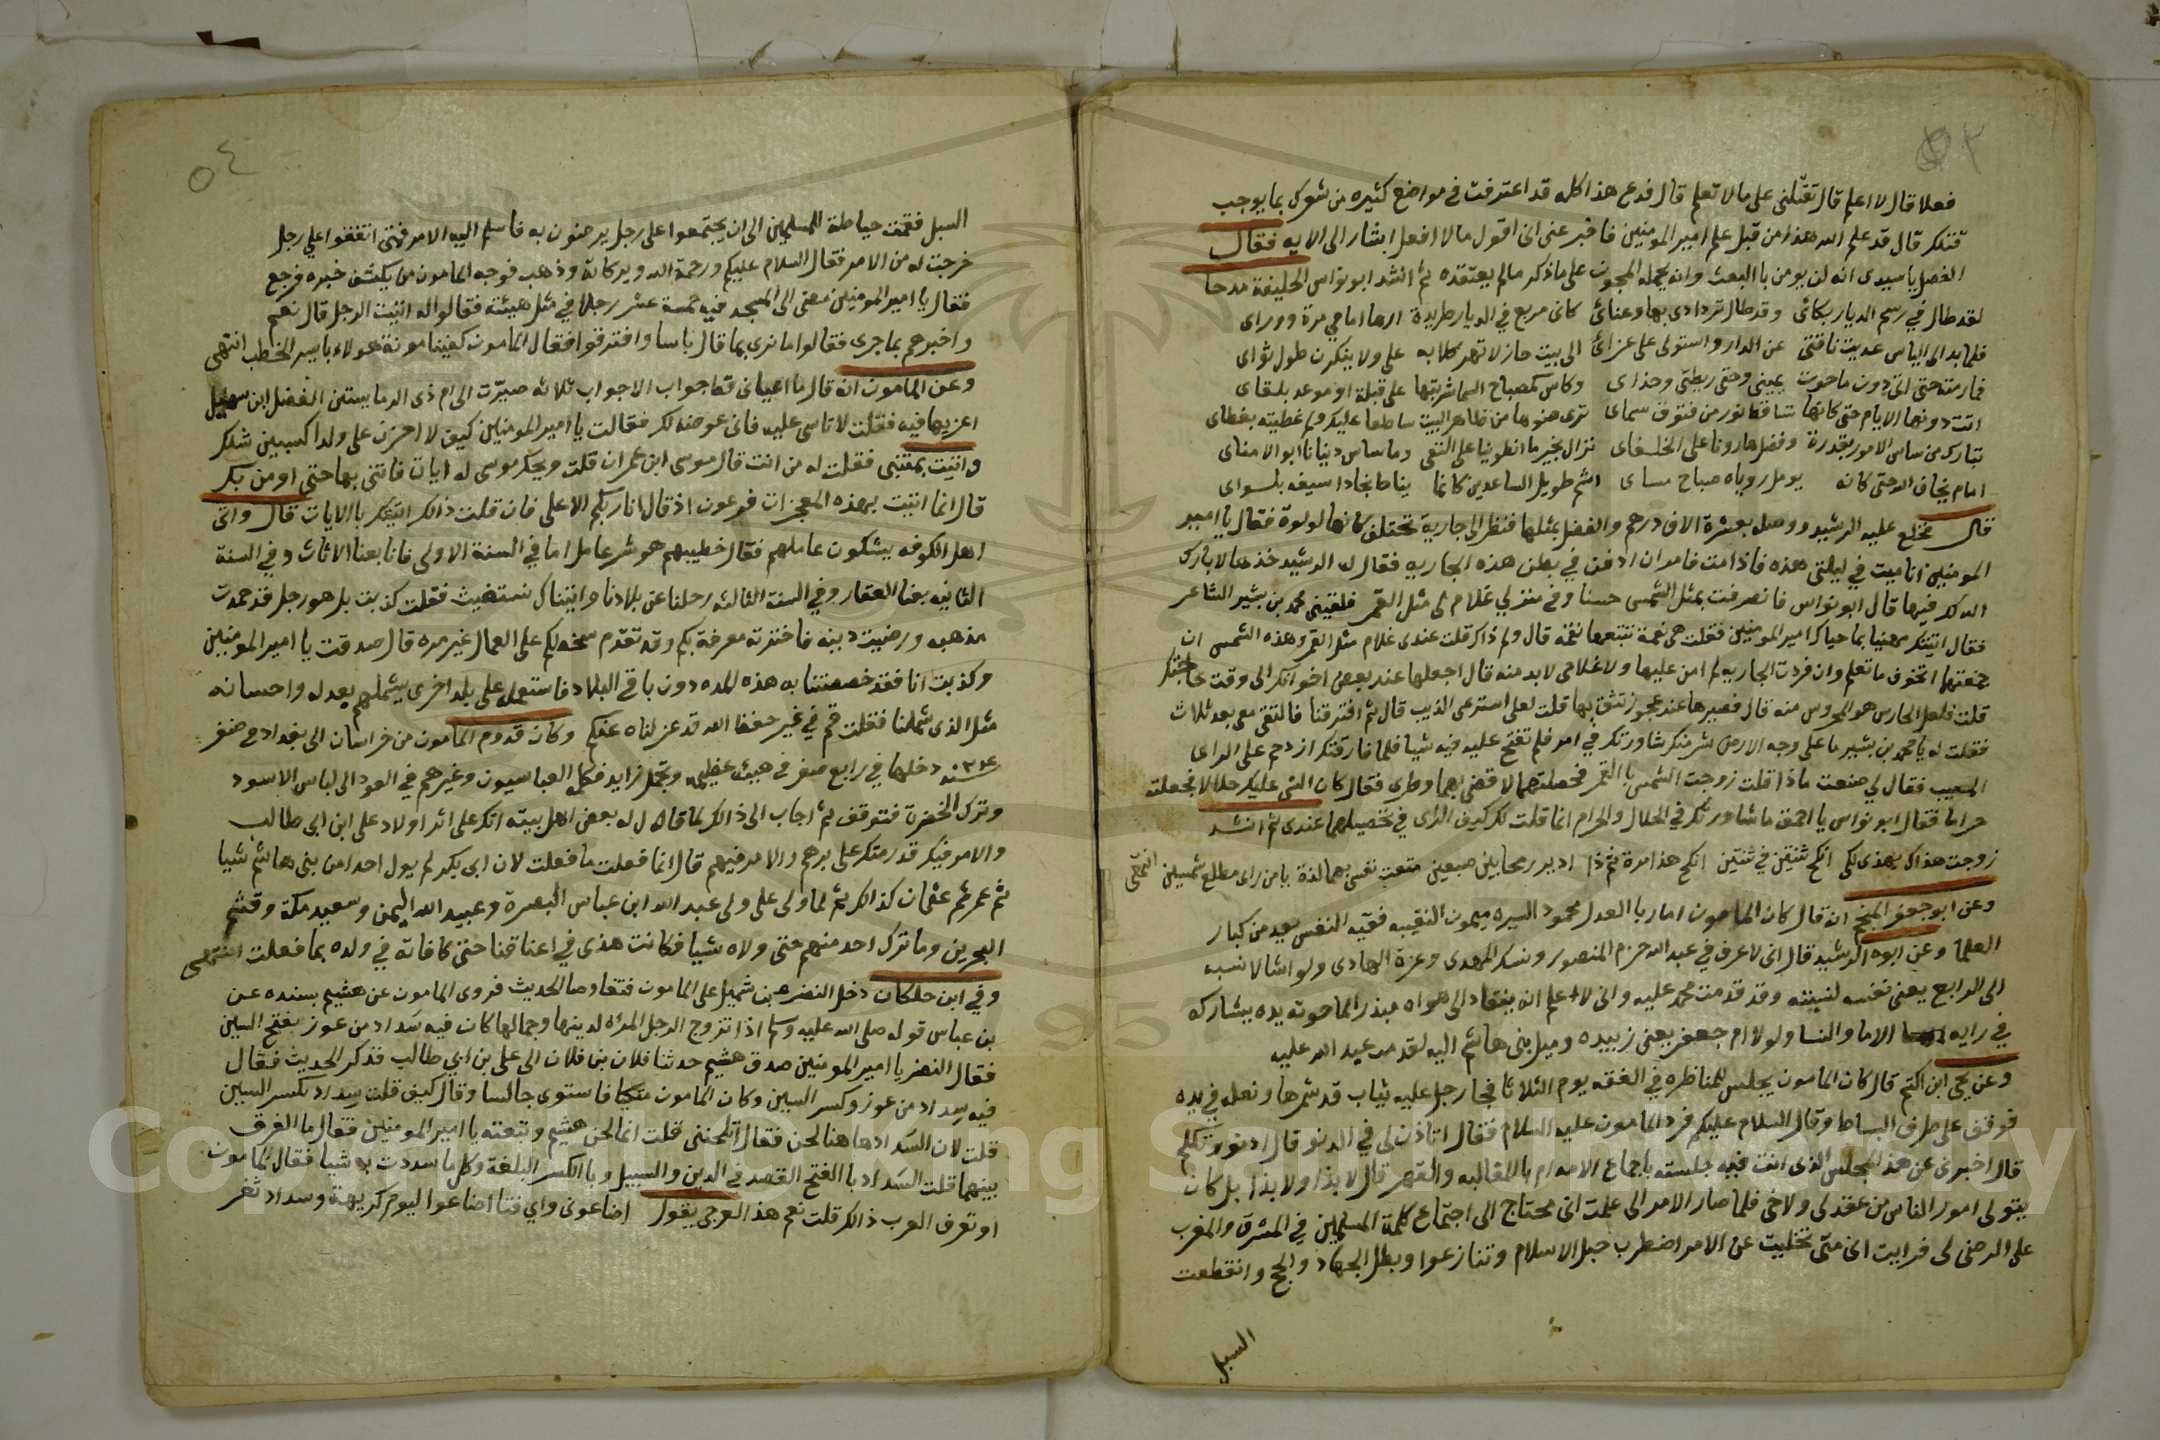 ٥٣
فعلا قال لا اعلم قال تقتلنى على ما لا تعلم قال فدع هذا كله قد اعترفت في مواضع كثيره من شعرك بما يوجب
قتلك قال قد علم الله هذا من قبل علم امير المومنين فاخبر عنى انى اقول ما لا افعل اشار الى الايه فقال
الفضل يا سيدى انه لن يومن با البعث وانه يحمله المجون على ما ذكر ما لم يعتقده ثم انشد ابو نواس الخليفة مدحا
لقد طال في رسم الديار بكائى وقد طال تردادى بها وعنائ كانى مريع في الديار طريدة اراها امامي مرة وورا‌ى
فلما بدا لى الياس عديت ناقتى عن الدار واستولى على عزائ الى بيت حان لا تهر كلابه على ولا ينكرن طول ثواى
فما رمته حتى اتى دون ما حوت يمينى وحتى ريطتى وحذاى وكاس كمصباح السما شربتها على قبلة او موعد بلقاى
اتت دونها الايام حتى كانها تساقط نور من فتوق سماى ترى ضوها من ظاهر البيت ساطعا عليك ولو غطيته بغطاى
تبارك من ساس الامور بقدرة وفضل هارونا على الخلفاى نزال بخير ما انطوينا على التقى وما ساس دنيانا ابو الامناى
امام يخاف الله حتى كانه يومل روياه صباح مساى اشم طويل الساعدين كانما يناط نجادا سيفه بلواى
قال فخلع عليه الرشيد ووصل بعشرة الاف درهم والفضل بمثلها فنظر الى جارية تختلف كانها لولوة فقال يا امير
المومنين انا ميت في ليلتى هذه فاذا مت فامر ان ادفن في بطن هذه الجاريه فقال له الرشيد خذها لا بارك
الله لك فيها قال ابو نواس فانصرفت بمثل الشمس حسنا وفي منزلي غلام لى مثل القمر فلقينى محمد بن بشير الشاعر
فقال اتيتك مهنيا بما حباك امير المومنين فقلت هى نعمة تتبعها نقمه قال ولم ذاك قلت عندى غلام مثل القمر وهذه الشمس ان
جمعتهما اتخوف ما تعلم وان فردت الجاريه لم امن عليها ولا غلامى لا بد منه قال اجعلها عند بعض اخوانك الى وقت حاجتك
قلت فلعل الحارس هو المحروس منه قال فصيرها عند عجوز تثق بها قلت لعلى استرعى الذيب قال ثم افترقنا فالتقى معى بعد ثلاث
فقلت له يا محمد بن بشير ما على وجه الارض شر منك شاورتك في امر فلم تفتح عليه فيه شيا فلما فارقتك ازدحم على الراى
المصيب فقال لي صنعت ماذا قلت زوجت الشمس با القمر فحصلتهما لاقضى بهما وطرى فقال كان الشى عليك حلالا فجعلته
حراما فقال ابو نواس يا احمق ما شاورتك في الحلال والحرام انما قلت لك كيف الراى في تحصيلهما عندى ثم انشد
زوجت هذاك بهذى لكى انكح ثنتين في ثنتين انكح هذا مرة ثم ذا ادير رمحا بين صبعين متعت نفسى بهما لذة يا من راى مطلع شمسين انتهى
وعن ابو جعفر المنجم انه قال كان المامون امارا با العدل محمود السيره ميمون النقيبه فقيه النفس يعد من كبار
العلما وعن ابوه الرشيد قال انى لاعرف في عبد الله حزم المنصور ونسك المهدى وعزة الهادى ولو اشا لانسبه
الى الرابع يعنى نفسه لنسبته وقد قدمت محمد عليه وانى لاعلم انه ينقاد الى هواه مبذر الما حوته يده يشاركه
في رايه الاما والنسا ولولا ام جعفر يعنى زبيده وميل بنى هاشم اليه لقدمت عبد الله عليه
وعن يحى ابن اكثم قال كان المامون يجلس للمناظره في الفقه يوم الثلاثا فجا رجل عليه ثياب قد شمرها ونعله في يده
فوقف على طرف البساط وقال السلام عليكم فرد المامون عليه السلام فقال اتاذن لى في الدنو قال ادنو وتكلم
قال اخبرنى عن هذا المجلس الذى انت فيه جلسته باجماع الامه ام با المغالبه والقهر قال لا بذا ولا بذا بل كان
يتولى امور الناس من عقد لى ولاخى فلما صار الامر الى علمت انى محتاج الى اجتماع كلمة المسلمين في المشرق والمغرب
على الرضى لى فرايت انى متى تخليت عن الامر اضطرب حبل الاسلام وتنازعوا وبطل الجهاد والحج وانقطعت
السبل
٥٤
السبل فقمت حياطة للمسلمين الى ان يجتمعوا على رجل يرضون به فاسلم اليه الامر فمتى اتفقوا على رجل
خرجت له من الامر فقال السلام عليكم ورحمة الله وبركاته وذهب فوجه المامون من يكشف خبره فرجع
فقال يا امير المومنين مضى الى المسجد فيه خمسة عشر رجلا في مثل هيئته فقالوا له اتيت الرجل قال نعم
واخبرهم بما جرى فقالوا ما نرى بما قال باسا وافترقوا فقال المامون كفينا مونة هولاء بايسر الخطب انتهى
وعن المامون انه قال ما اعيانى قط جواب الا جواب ثلاثه صيرت الى ام ذى الرياستين الفضل ابن سهيل
اعزيها فيه فقلت لا تاسى عليه فانى عوضه لك فقالت يا امير المومنين كيف لا احزن على ولدا كسبنى مثلك
واتيت بمتنبى فقلت له من انت قال موسى ابن عمران قلت ويحك موسى له ايات فاتنى بها حتى اومن بك
قال انما اتيت بهذه المعجزات فرعون اذ قال انا ربكم الاعلى فان قلت ذالك اتيتك با الايات قال واتى
اهل الكوفه يشكون عاملهم فقال خطيبهم هو شر عامل اما في السنة الاولى فانا بعنا الاثاث وفي السنة
الثانيه بعنا العقار وفي السنة الثالثه رحلنا عن بلادنا واتيناك نستغيث فقلت كذبت بل هو رجل قد حمدت
مذهبه ورضيت دينه فاخترته معرفة بكم وقد تقدم سخطكم على العمال غير مره قال صدقت يا امير المومنين
وكذبت انا فقد خصصتنا به هذه المده دون باقي البلاد فاستعمله على بلد اخرى يشملهم بعدله واحسانه
مثل الذى شملنا فقلت قم في غير حفظ الله قد عزلناه عنكم وكان قدوم المامون من خراسان الى بغداد في صفر
سنه دخلها في رابع صفر في هيبة عظيمه وتجمل زايد فكلم العباسيون وغيرهم في العود الى لباس الاسود
وترك الخضرة فتوقف ثم اجاب الى ذالك لما قال له بعض اهل بيته انك على اثر اولاد على ابن ابى طالب
والامر فيك قدرتك على برهم والامر فيهم قال انما فعلت ما فعلت لان ابى بكر لم يول احدا من بنى هاشم شيا
ثم عمر ثم عثمان كذالك ثم لما ولى على ولى عبد الله ابن عباس البصرة وعبيد الله اليمن وسعيد مكة وقثم
البحرين وما ترك احد منهم حتى ولاه شيا فكانت هذى في اعناقنا حتى كافاته في ولده بما فعلت انتهى
وفي ابن خلكان دخل النضر بن شميل على المامون فتفاوضا الحديث فروى المامون عن هشيم بسنده عن
بن عباس قوله صلى الله عليه وسلم اذا تزوج الرجل المراه لدينها وجمالها كان فيه سداد من عوز بفتح السين
فقال النضر يا امير المومنين صدق هشيم حدثنا فلان بن فلان الى على بن ابي طالب فذكر الحديث فقال
فيه سداد من عوز وكسر السين وكان المامون متكا فاستوى جالسا وقال كيف قلت سداد بكسر السين
قلت لان السداد هاهنا لحن فقال اتلحننى قلت انما لحن هشيم وتبعته يا امير المومنين فقال ما الفرق
بينهما قلت السداد با الفتح القصد في الدين والسبيل وبا الكسر البلغة وكل ما سددت به شيا فقال المامون
او تعرف العرب ذالك قلت نعم هذا العرجى يقول اضاعونى واي فتا اضاعوا ليوم كريهة وسداد ثغر